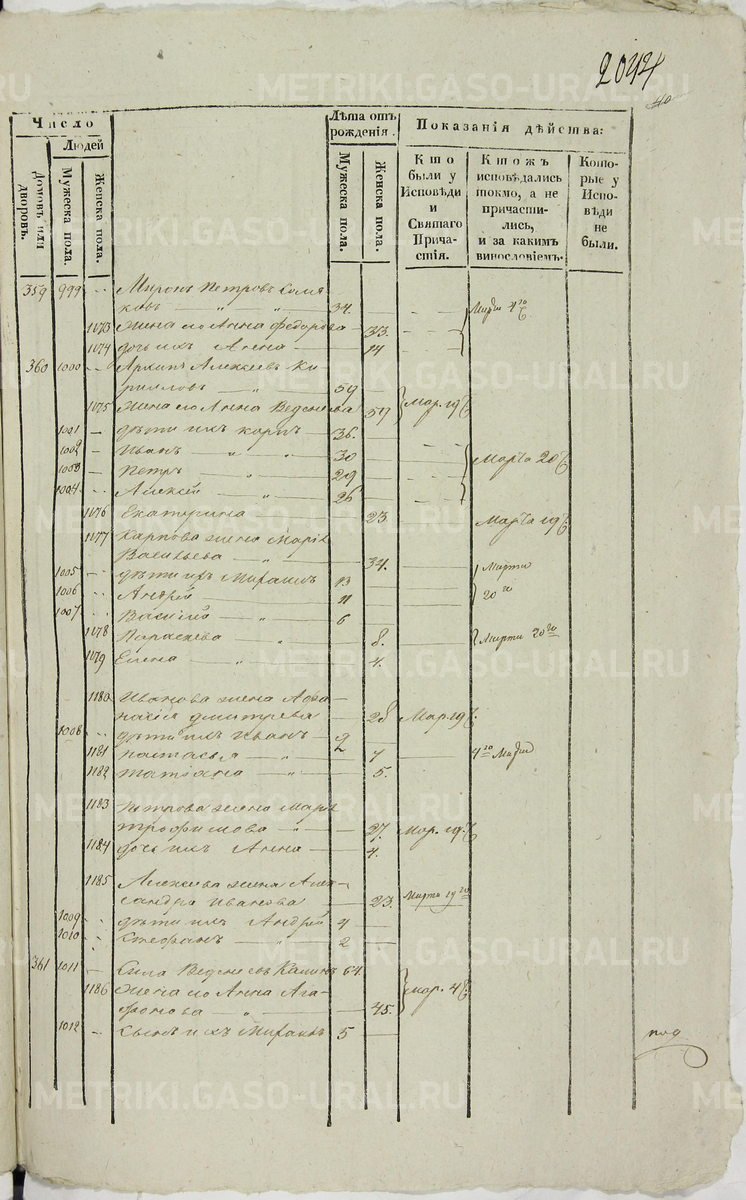 2044
40
Число
Людей
Домовъ или дворовъ.
Мужеска пола.
Женска пола.
Лѣта отъ рожденія.
Мужеска пола.
Женска пола.
Показанія дѣйства:
Кто были у Исповѣди и Святаго Причастія.
Ктожъ исповѣдались токмо, а не причастились, и за какимъ винословіемъ.
Которые у Исповѣди не были.
359 999 Миронъ Петровъ
ковъ 34.
1073 Жена его Анна Федорова 33.
1074 дочь их 14
360 1000 Архипъ Алексѣевъ Ки-
рилловъ 59
1075 Жена его Анна 59 Мар. 19
1001 дѣти ихъ Карпъ 36.
1002 Иванъ 30 Марта 20
1003 Петръ 29
1004 Алексѣй 26
1076 Екатерина 23. Марта 19
1077 Карпова жена Марья
Васильева 34.
1005 дѣти ихъ Михаилъ 13 Марта
1006 Андрей 11 20
1007 Василій 6
1078 Параскева 8. Марта 20
1079 Елена 4.
1180 Иванова жена Афа-
насія Дмитрева 28 Мар 19
1008 дѣти ихъ Иванъ 9
1181 Настасья 7
1182 Татіана 5.
1183 Петрова жена Марья
Трофимова 27. Мар. 19.
1184 дочь ихъ Анна 4.
1185 Алексѣева жена Алек-
сандра Иванова 23. Марта 19
1009 дѣти ихъ Андрей 4
1010 Стефанъ 2
361 1011 Сила 64.
1186 Жена его Анна Ага-
фонова 45. Мар. 4
1012 Сынъ ихъ 5
METRIKI.GASO-URAL.RU